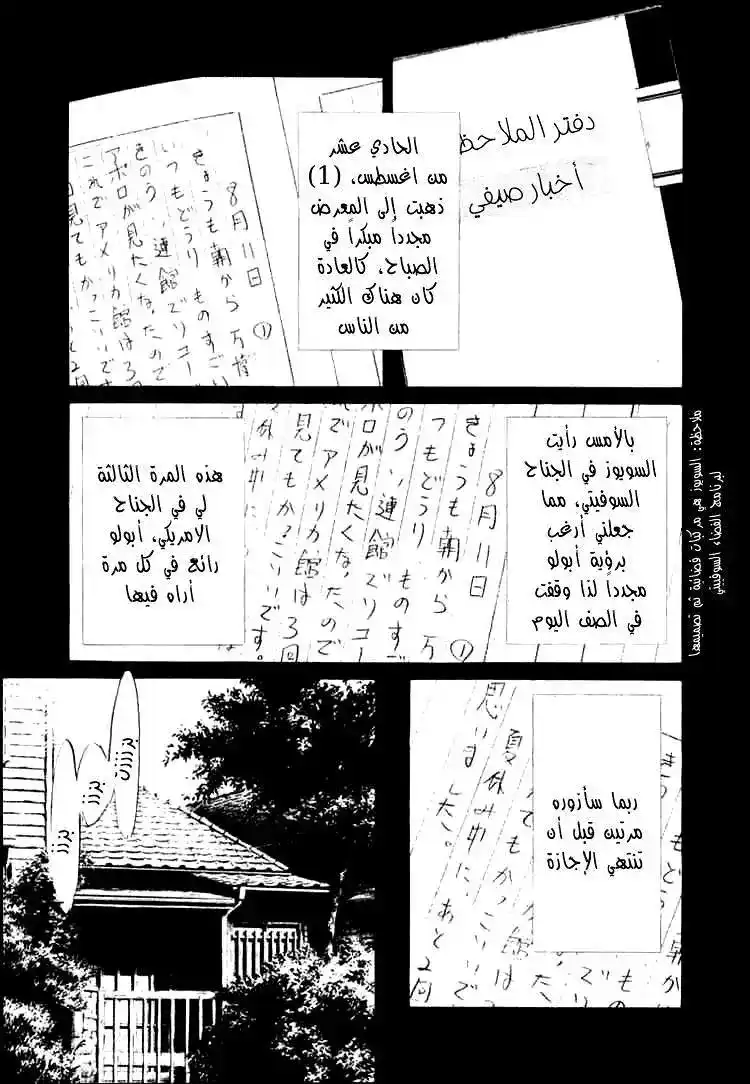 دفتر الملاحظ
أخبار صيفي
الحادي عشر
من اغسطس، (1)
ذهبت إلى المعرض
مجدداً مبكراً في
الصباح، كالعادة
كان هناك الكثير
من الناس
8月11日
①
きょうも朝から万博
いつもどうりものすごい
きのうソ連館でソユー
アポロが見たくなったので
これでアメリカ館は3回
見てもかっこいいです
بالأمس رأيت
السويوز في الجناح
السوفيتي، مما
جعلني أرغب
برؤية أبولو
مجدداً لذا وقفت
في الصف اليوم
هذه المرة الثالثة
لي في الجناح
الامريكي، أبولو
رائع في كل مرة
أراه فيها
8月11日
①
きょうも朝から万
つもどうりものすご
のうソ連館でソユー
ポロが見たくなったので
れでアメリカ館は3回
見てもかっこいいです。
休み中に
ملاحظة: السويوز هي مركبات فضائية تم تصميمها
لبرنامج الفضاء السوفيتي
ربما سأزوره
مرتين قبل أن
تنتهي الإجازة
てもかっこいいで
夏休み中に、あと2回
思いました。
بززززت
بززز
بززز